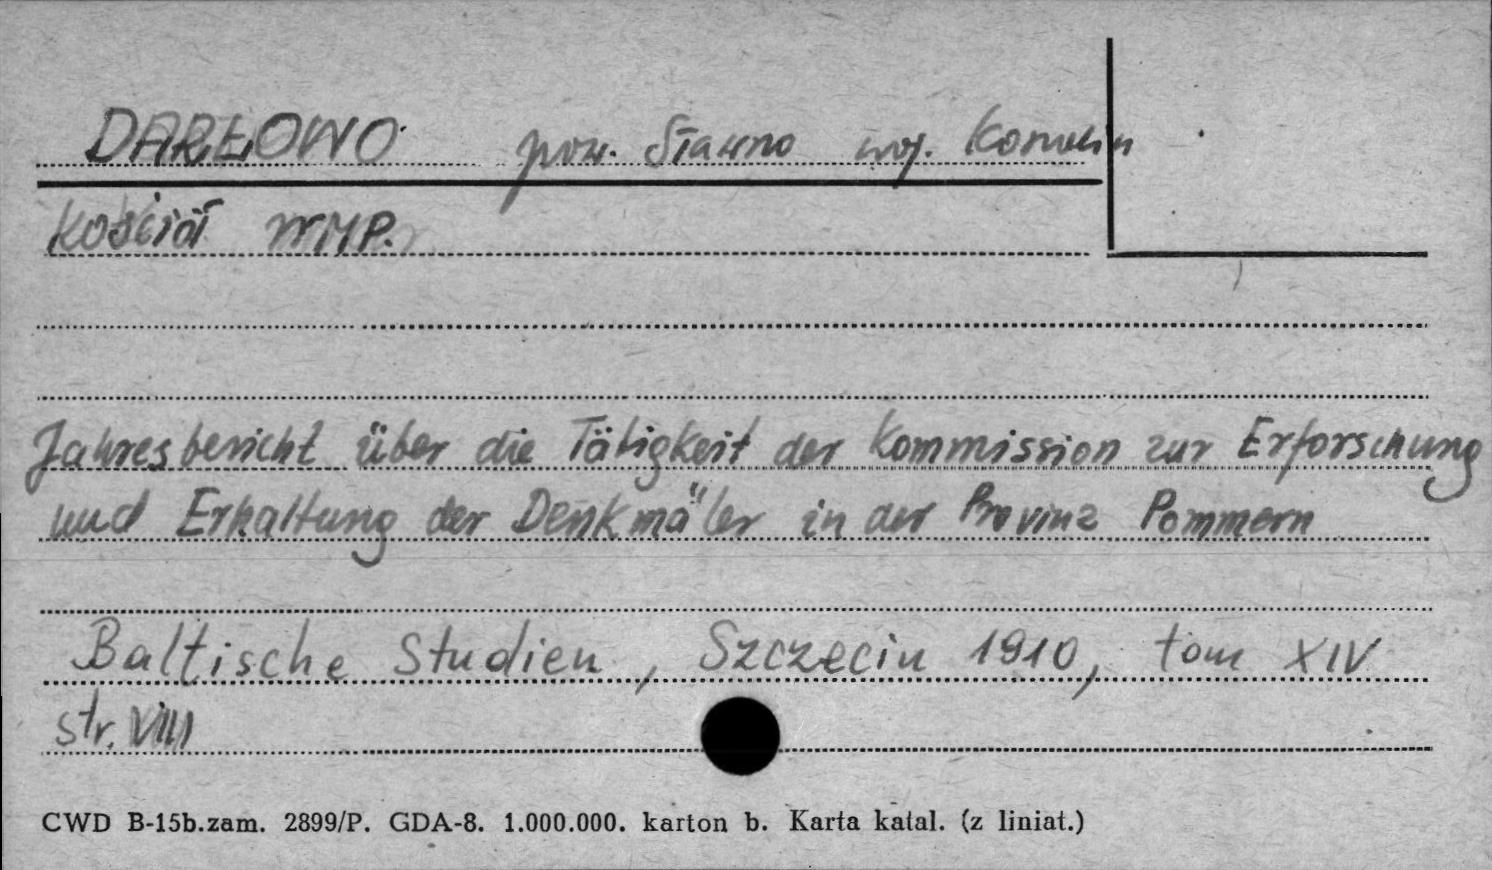 DARŁOWO pow. Sławno woj. Koszalin
Kościół NMP.
Jahresbericht über die Tätigkeit der Kommission zur Erforschung
und Erhaltung der Denkmäler in der Provinz Pommern
Baltische Studien, Szczecin 1910, tom XIV
str. VIII
CWD B-15b.zam. 2899/P. GDA-8. 1.000.000. karton b. Karta katal. (z liniat.)